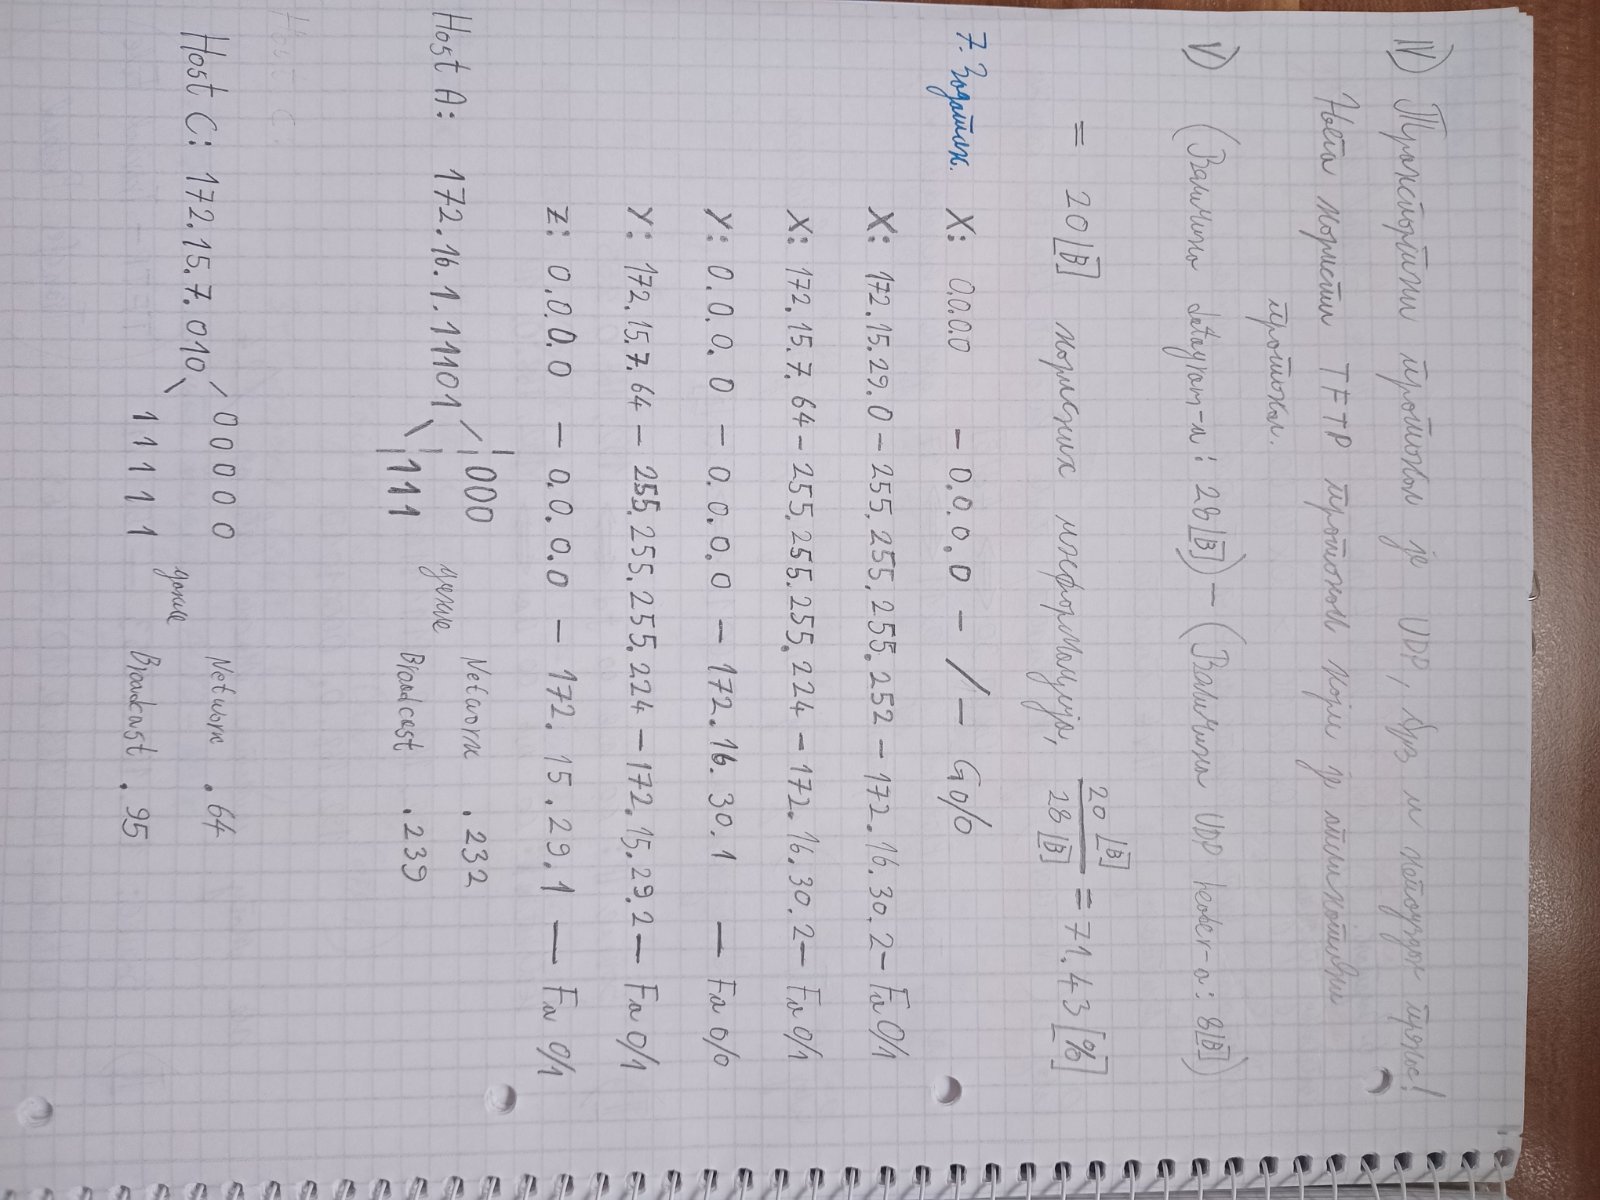 IV) Транспортни протокол је UDP, брз и непоуздан пренос!
Њега користи TFTP протокол који је апликативни
протокол.
V) (Величина datagram-a: 28[B]) - (Величина UDP header-a: 8[B])
= 20[B] корисних информација, 20 [B] / 28 [B] = 71.43 [%]
7. Задатак. X: 0.0.0.0 - 0.0.0.0 - / - G0/0
X: 172.15.29.0 - 255.255.255.252 - 172.16.30.2 - Fa 0/1
X: 172.15.7.64 - 255.255.255.224 - 172.16.30.2 - Fa 0/1
Y: 0.0.0.0 - 0.0.0.0 - 172.16.30.1 - Fa 0/0
Y: 172.15.7.64 - 255.255.255.224 - 172.15.29.2 - Fa 0/1
Z: 0.0.0.0 - 0.0.0.0 - 172.15.29.1 - Fa 0/1
000 Network .232
Host A: 172.16.1.11101 дакле
111 Broadcast .239
Host C:
00000 Network .64
Host C: 172.15.7.010 дакле
11111 Broadcast .95